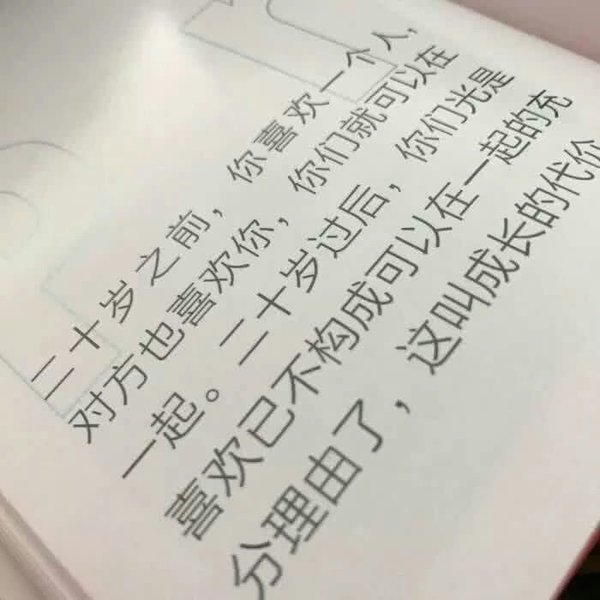 二十岁之前，你喜欢一个人，
对方也喜欢你，你们就可以在
一起。二十岁过后，你们光是
喜欢已不构成可以在一起的充
分理由了，这叫成长的代价